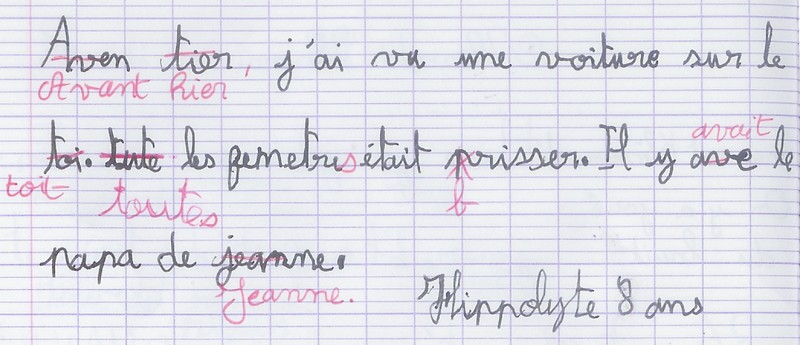 Aven tier, j'ai vu une voiture sur le
Avant hier
avait
toi. tute les femetres était prisser. Il y ave le
toit toutes b
papa de jeanne.
Jeanne. Hippolyte 8 ans